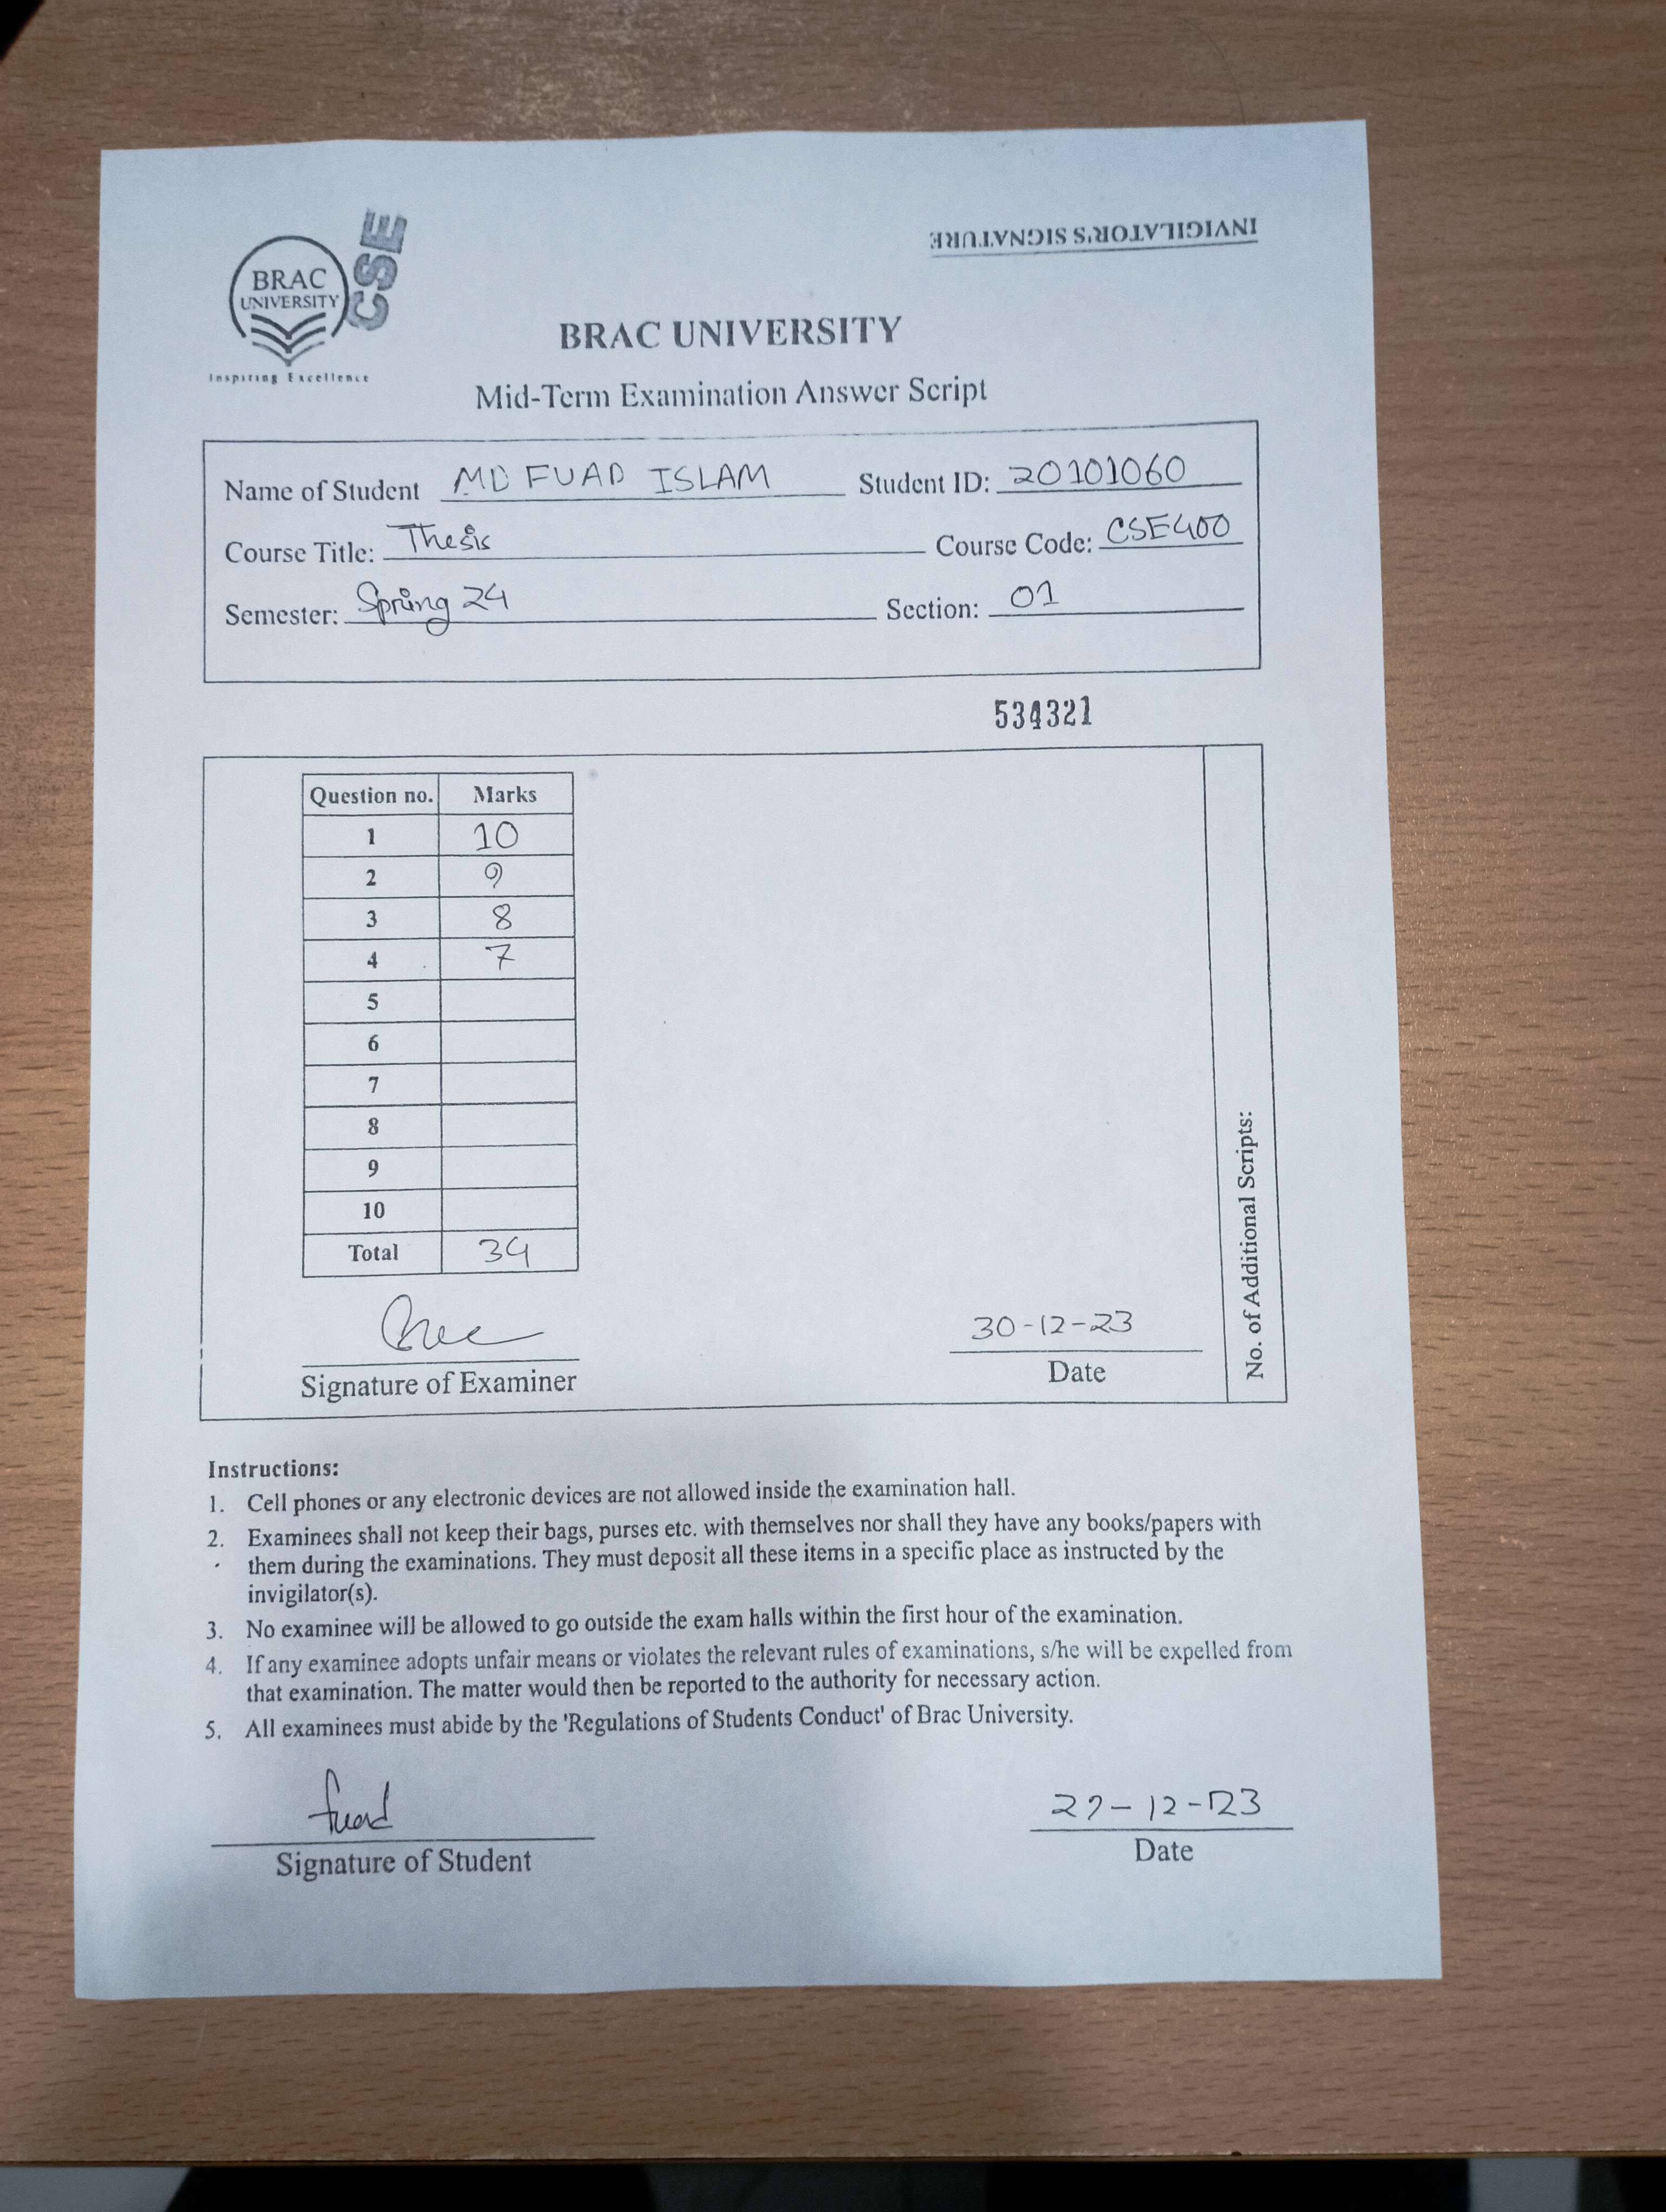 INVIGILATOR'S SIGNATURE
BRAC
UNIVERSITY
CSE
Inspiring Excellence
BRAC UNIVERSITY
Mid-Term Examination Answer Script
Name of Student MD FUAD ISLAM Student ID: 20101060
Course Title: Thesis Course Code: CSE400
Semester: Spring 24 Section: 01
534321
Question no. Marks
1 10
2 9
3 8
4 7
5
6
7
8
9
10
Total 34
30-12-23
Signature of Examiner Date
No. of Additional Scripts:
Instructions:
1. Cell phones or any electronic devices are not allowed inside the examination hall.
2. Examinees shall not keep their bags, purses etc. with themselves nor shall they have any books/papers with
them during the examinations. They must deposit all these items in a specific place as instructed by the
invigilator(s).
3. No examinee will be allowed to go outside the exam halls within the first hour of the examination.
4. If any examinee adopts unfair means or violates the relevant rules of examinations, s/he will be expelled from
that examination. The matter would then be reported to the authority for necessary action.
5. All examinees must abide by the 'Regulations of Students Conduct' of Brac University.
fuad
Signature of Student Date